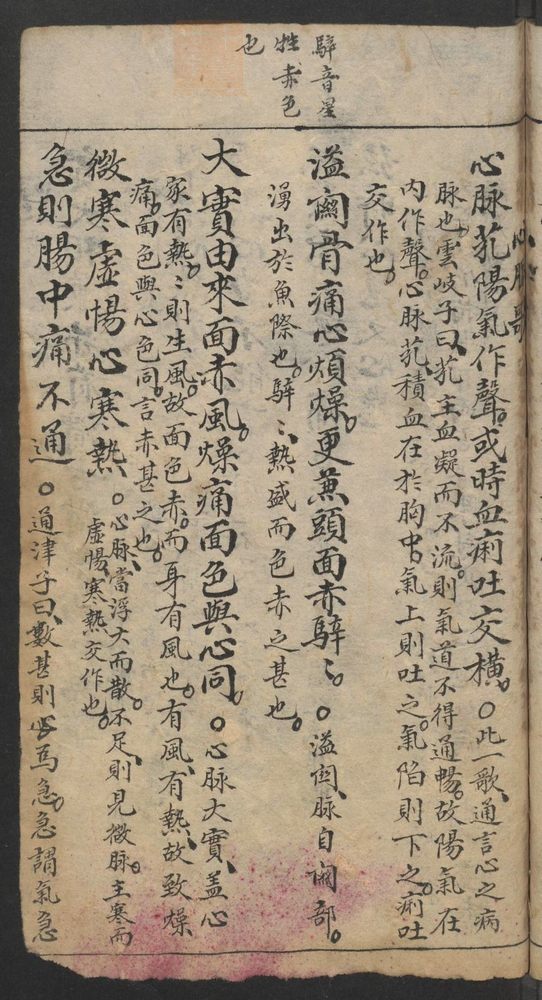 騂音星
牲赤色
也
心脉芤陽氣作聲或時血痢吐交橫○此一歌通言心之病
脉也雲岐子曰芤主血凝而不流則氣道不得通暢故陽氣在
内作聲心脉芤積血在於胸中氣上則吐之氣陷則下之痢吐
交作也
溢關骨痛心煩燥更蒹頭面赤騂〻○溢関脉自関部
湧出於魚際也騂〻熱盛而色赤之甚也
大實由來面赤風燥痛面色與心同○心脉大實盖心
家有熱〻則生風故面色赤而身有風也有風有熱故致燥
痛面色與心色同言赤甚之也
微寒虛惕心寒熱○心脉當浮大而散不足則見微脉主寒而
虛惕寒熱交作也
急則腸中痛不通○通津子曰數甚則必焉急急謂氣急